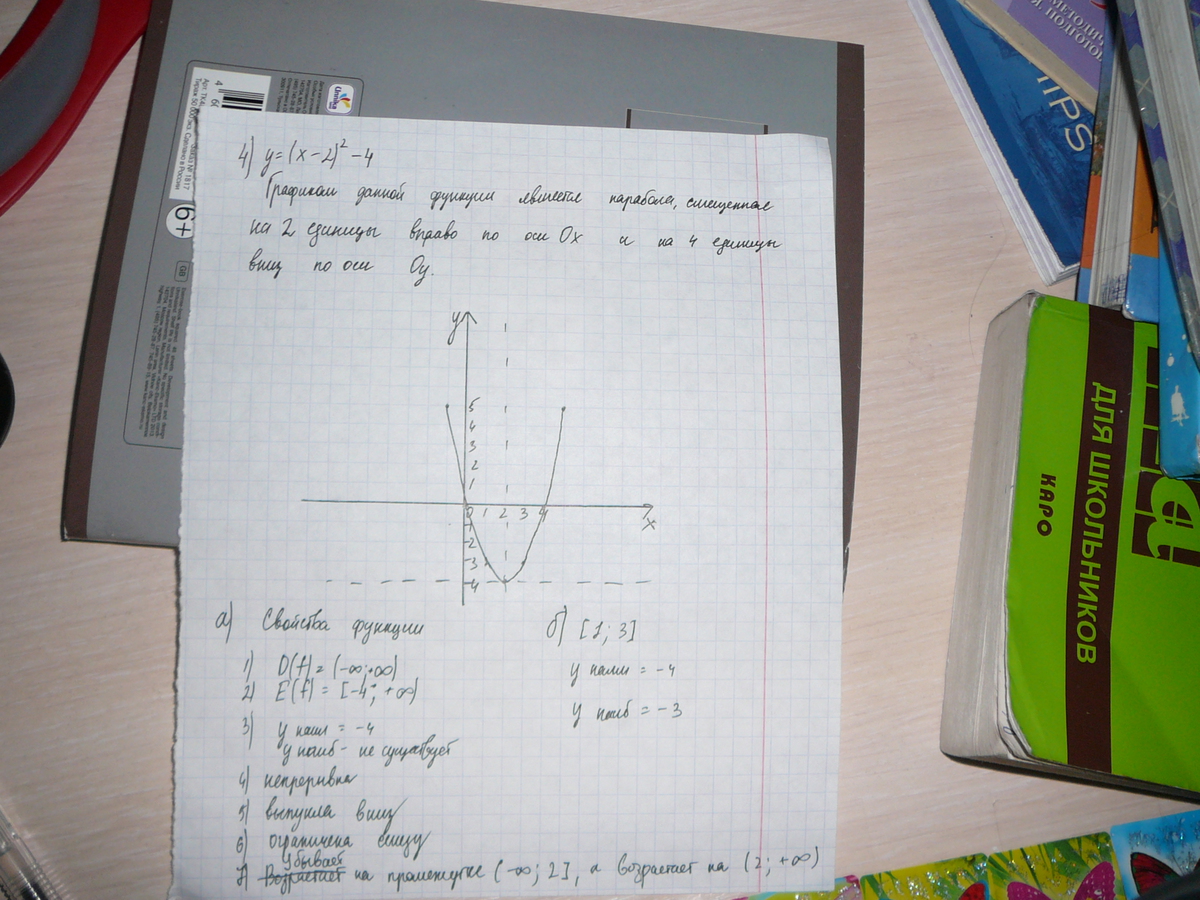 4) y=(x-2)²-4
Графиком данной функции является парабола, смещенная
на 2 единицы вправо по оси Ox и на 4 единицы
вниз по оси Oy.
y
5
4
3
2
1
0 1 2 3 4
x
1
2
3
4
а) Свойства функции
1) D(f)=(-∞;+∞)
2) E(f)=[-4; +∞)
3) y наим = -4
y наиб - не существует
4) непрерывна
5) выпукла вниз
6) ограничена снизу
убывает
7) Возрастает на промежутке (-∞; 2], а возрастает на (2; +∞)
б) [1; 3]
y наим = -4
y наиб = -3
6+
Unnika
GB
МЕТОДИЧ
ПОДГОТО
IPS
ДЛЯ ШКОЛЬНИКОВ
КАРО